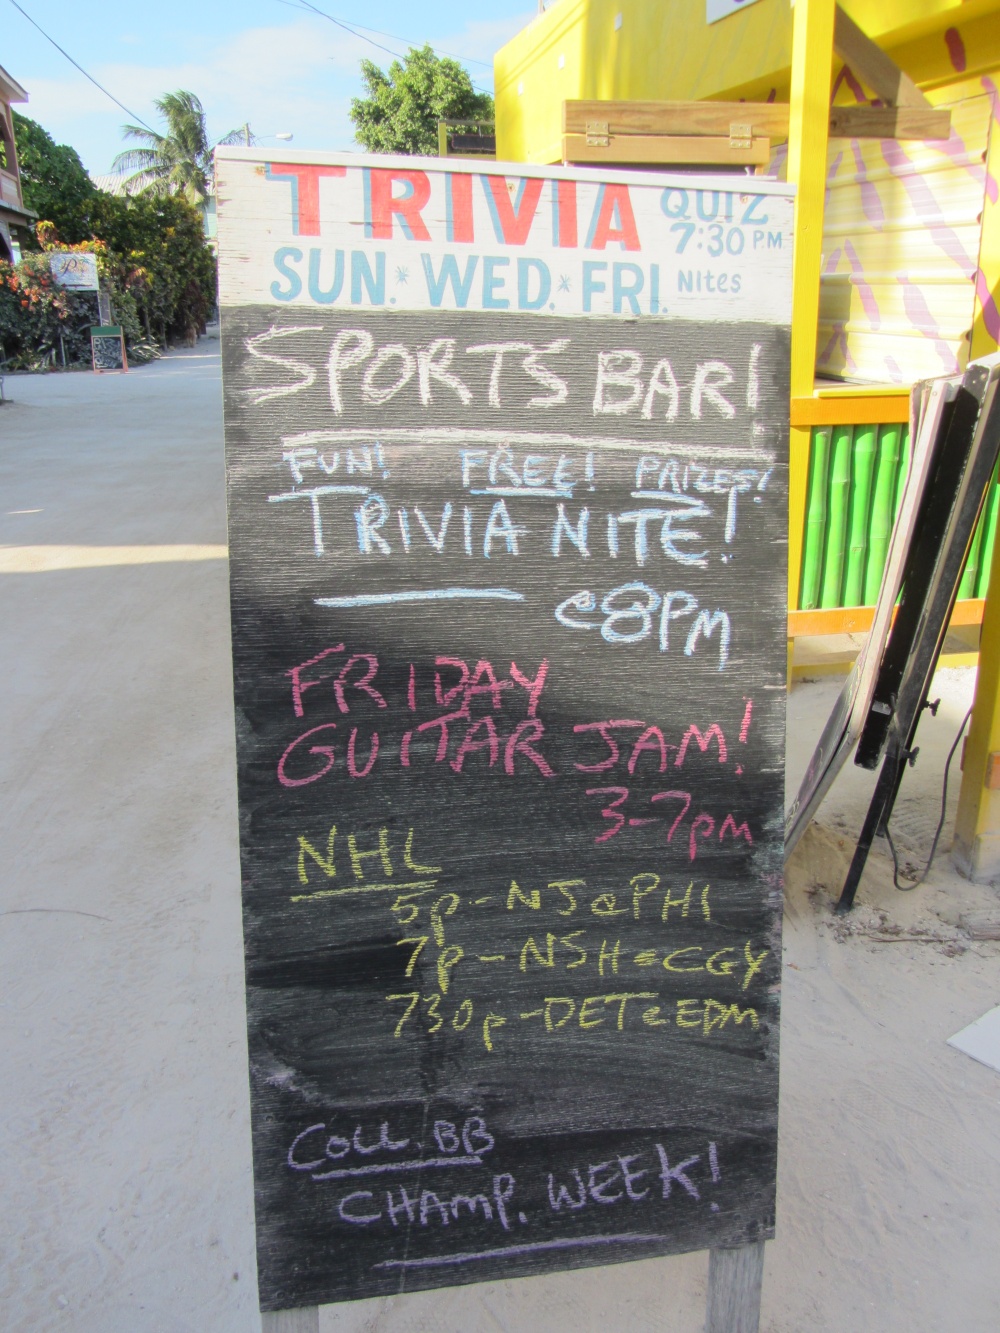 TRIVIA QUIZ 7:30 PM
SUN. * WED. * FRI. Nites
SPORTS BAR!
FUN! FREE! PRIZES!
TRIVIA NITE!
@8PM
FRIDAY
GUITAR JAM!
3-7pm
NHL
5p-NJ@PHI
7p-NSH@CGY
730p-DET@EDM
COLL. BB
CHAMP. WEEK!